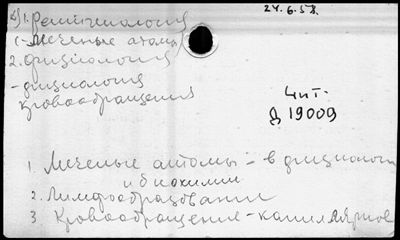 24.6.58.
1. Рентгенология
- Меченые атомы
2. физиология
- физиология
кровообращения
Чит.
Д 19009
1. Меченые атомы - в физиологи
и биохимии
2. Лимфообразование
3. Кровообращение - капиллярное